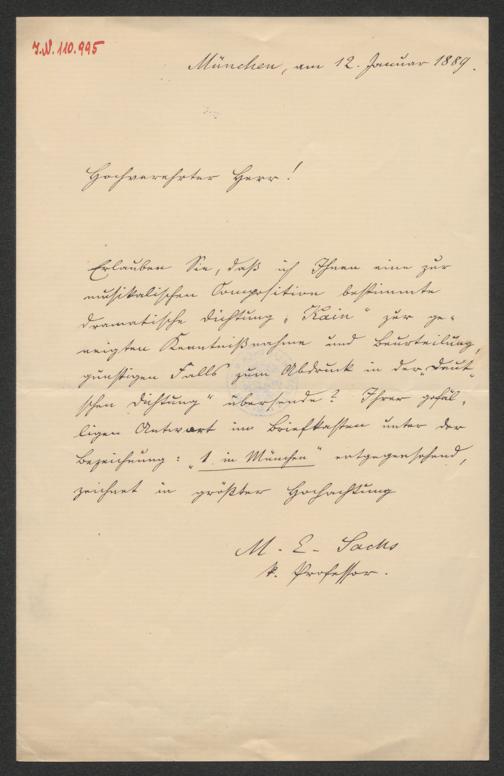 J.N. 110.995
München, am 12. Januar 1889.
Hochverehrter Herr!
Erlauben Sie, daß ich Ihnen eine zur
musikalischen Composition bestimmte
dramatische Dichtung „Kain“ zur ge-
neigten Kenntnißnahme und Beurteilung,
günstigen Falls zum Abdruck in der „Deut-
schen Dichtung“ übersende? Ihrer gefäl-
ligen Antwort im Briefkasten unter der
Bezeichnung: „1. in München“ entgegensehend,
zeichnet in größter Hochachtung
M. E. Sachs
k. Professor.